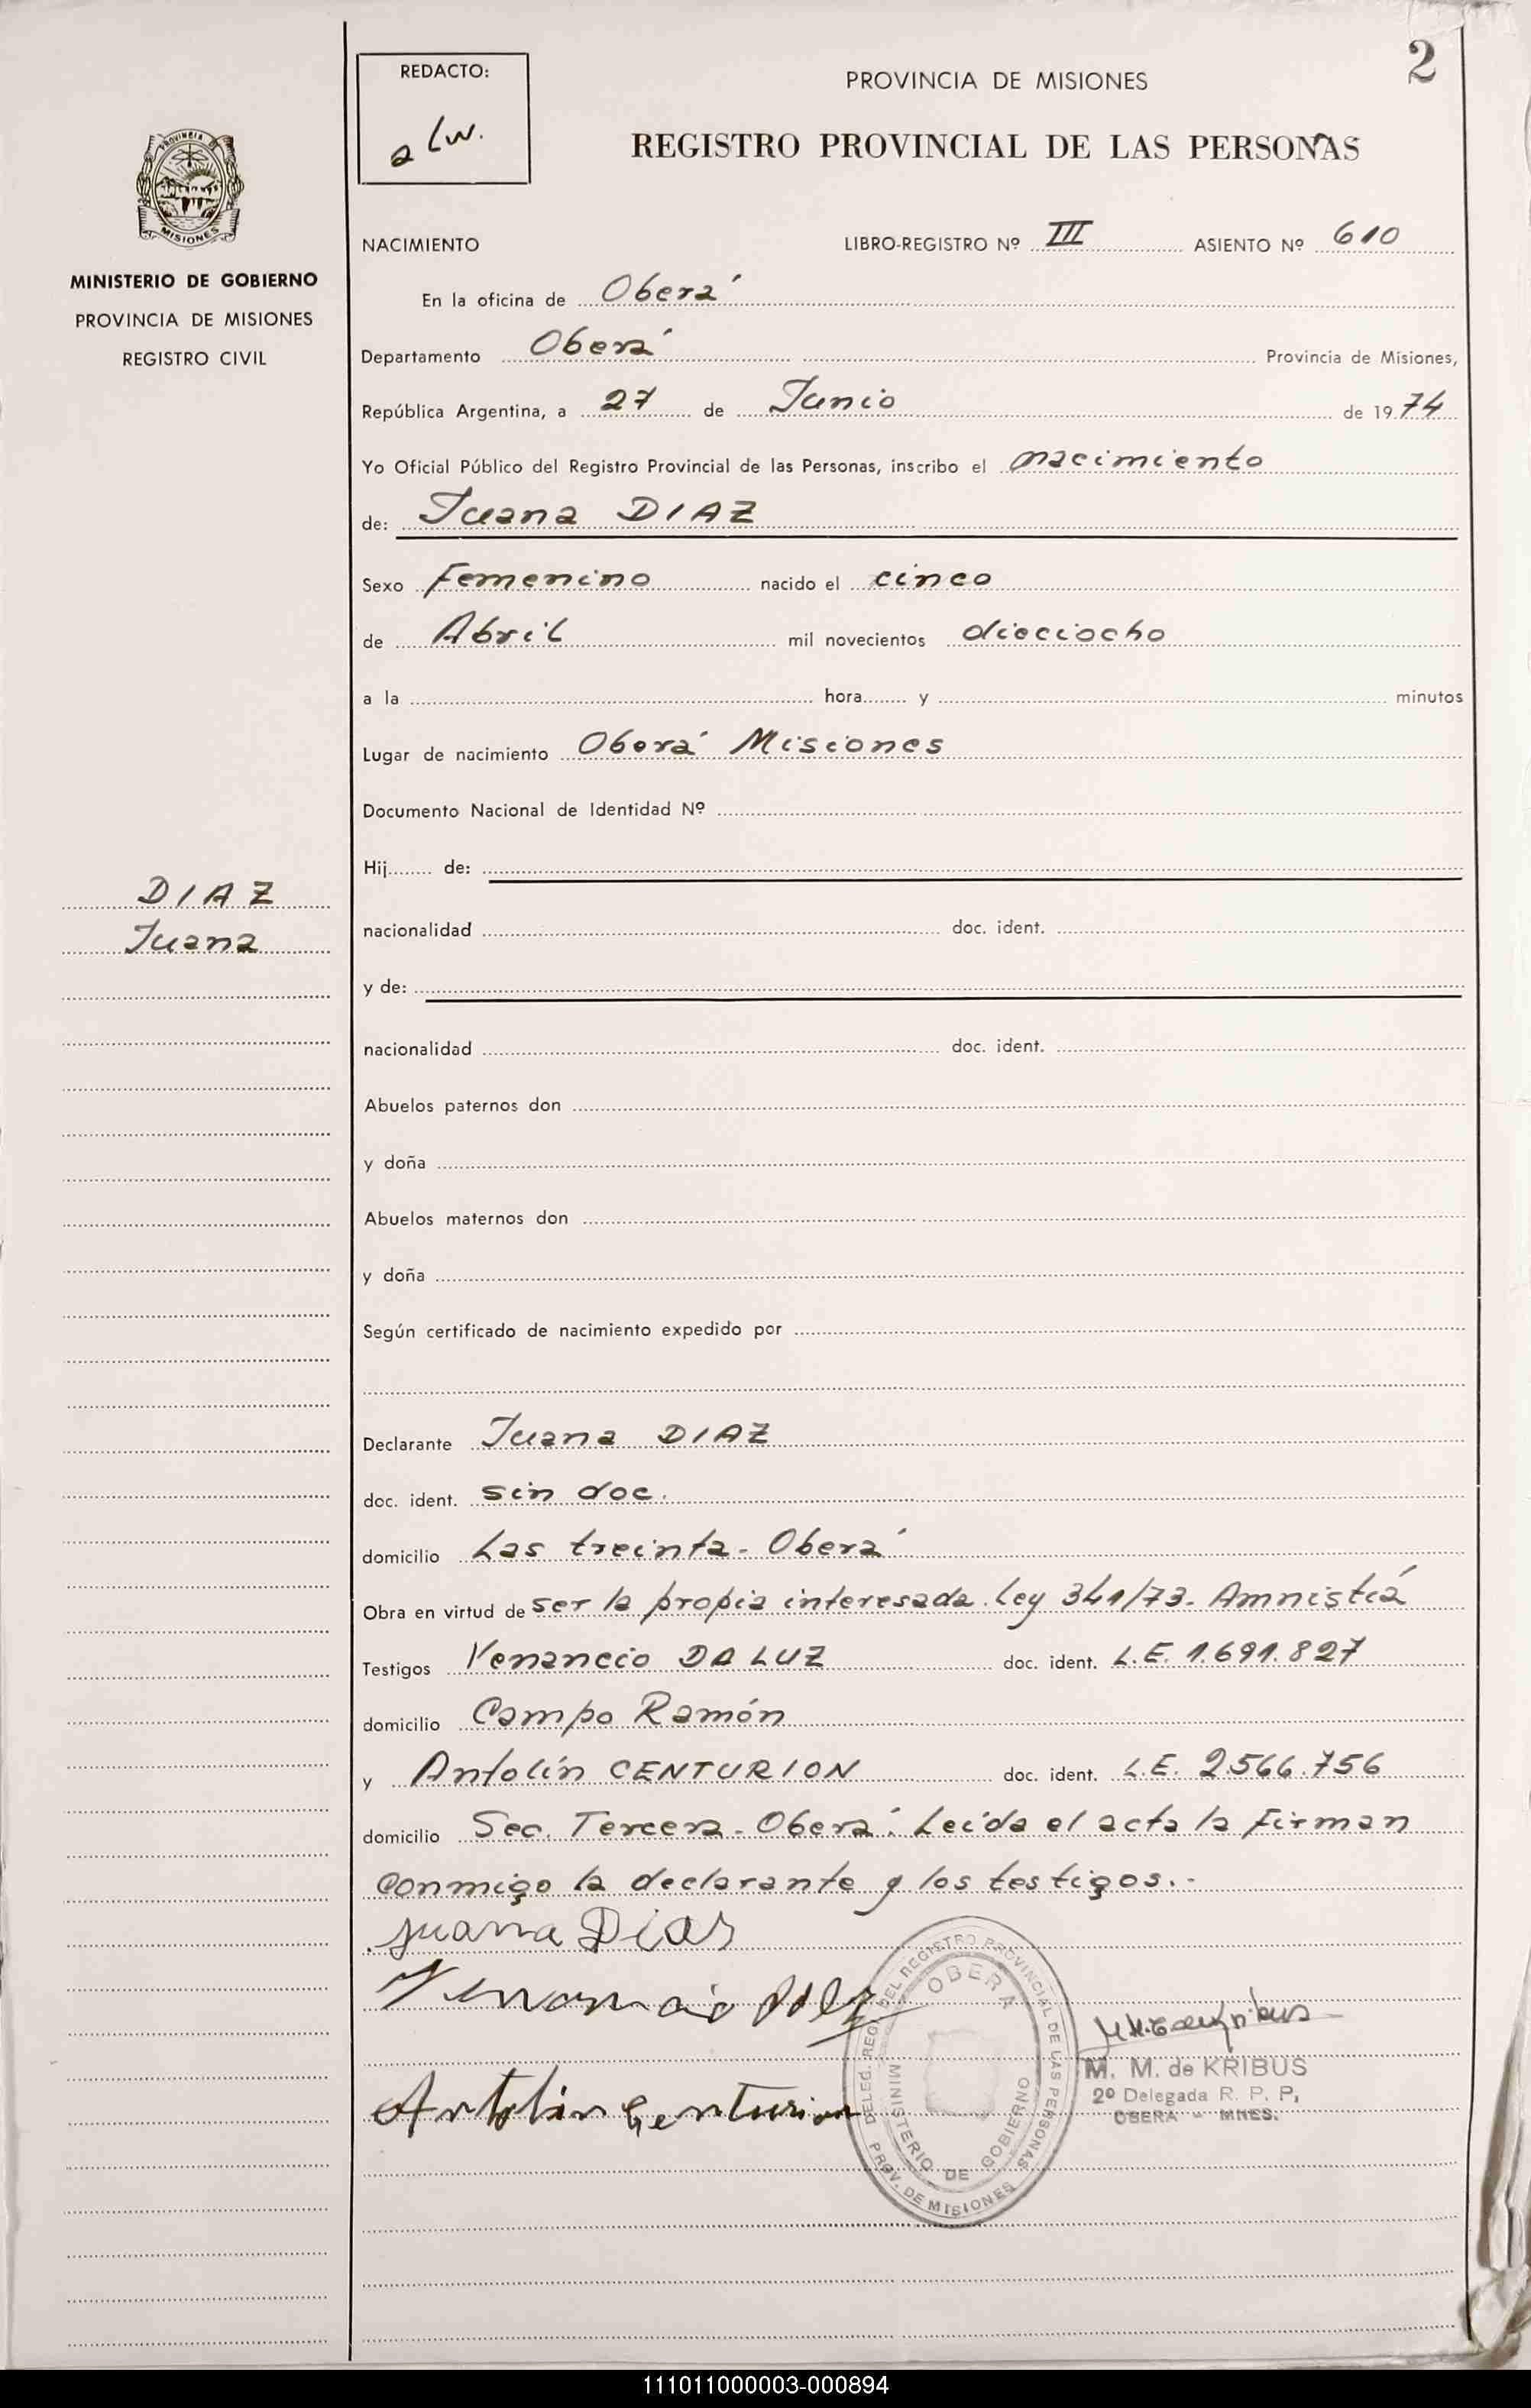 2
REDACTO:
PROVINCIA DE MISIONES
REGISTRO PROVINCIAL DE LAS PERSONAS
PROVINCIA DE
MISIONES
MINISTERIO DE GOBIERNO
PROVINCIA DE MISIONES
REGISTRO CIVIL
DIAZ
Juana
NACIMIENTO LIBRO-REGISTRO Nº III ASIENTO Nº 610
En la oficina de Oberá
Departamento Oberá Provincia de Misiones,
República Argentina, a 27 de Junio de 1974
Yo Oficial Público del Registro Provincial de las Personas, inscribo el nacimiento
de: Juana DIAZ
Sexo Femenino nacido el cinco
de Abril mil novecientos dieciocho
a la hora y minutos
Lugar de nacimiento Oberá Misiones
Documento Nacional de Identidad Nº
Hij de:
nacionalidad doc. ident.
y de:
nacionalidad doc. ident.
Abuelos paternos don
y doña
Abuelos maternos don
y doña
Según certificado de nacimiento expedido por
Declarante Juana DIAZ
doc. ident. sin doc.
domicilio Las treinta - Oberá
Obra en virtud de ser la propia interesada. Ley 341/73 - Amnistiá
Testigos Venancio DA LUZ doc. ident. L.E. 1.691.827
domicilio Campo Ramón
y Antolín CENTURION doc. ident. L.E. 2.566.756
domicilio Sec. Tercera - Oberá. Leída el acta la firman
conmigo la declarante y los testigos.-
Juana Dias
Antolin Centurion
DELEG. REG. DEL REGISTRO PROVINCIAL DE LAS PERSONAS
OBERA
MINISTERIO DE GOBIERNO
PROV. DE MISIONES
M. M. de KRIBUS
2º Delegada R. P. P,
OBERA - MNES.
111011000003-000894